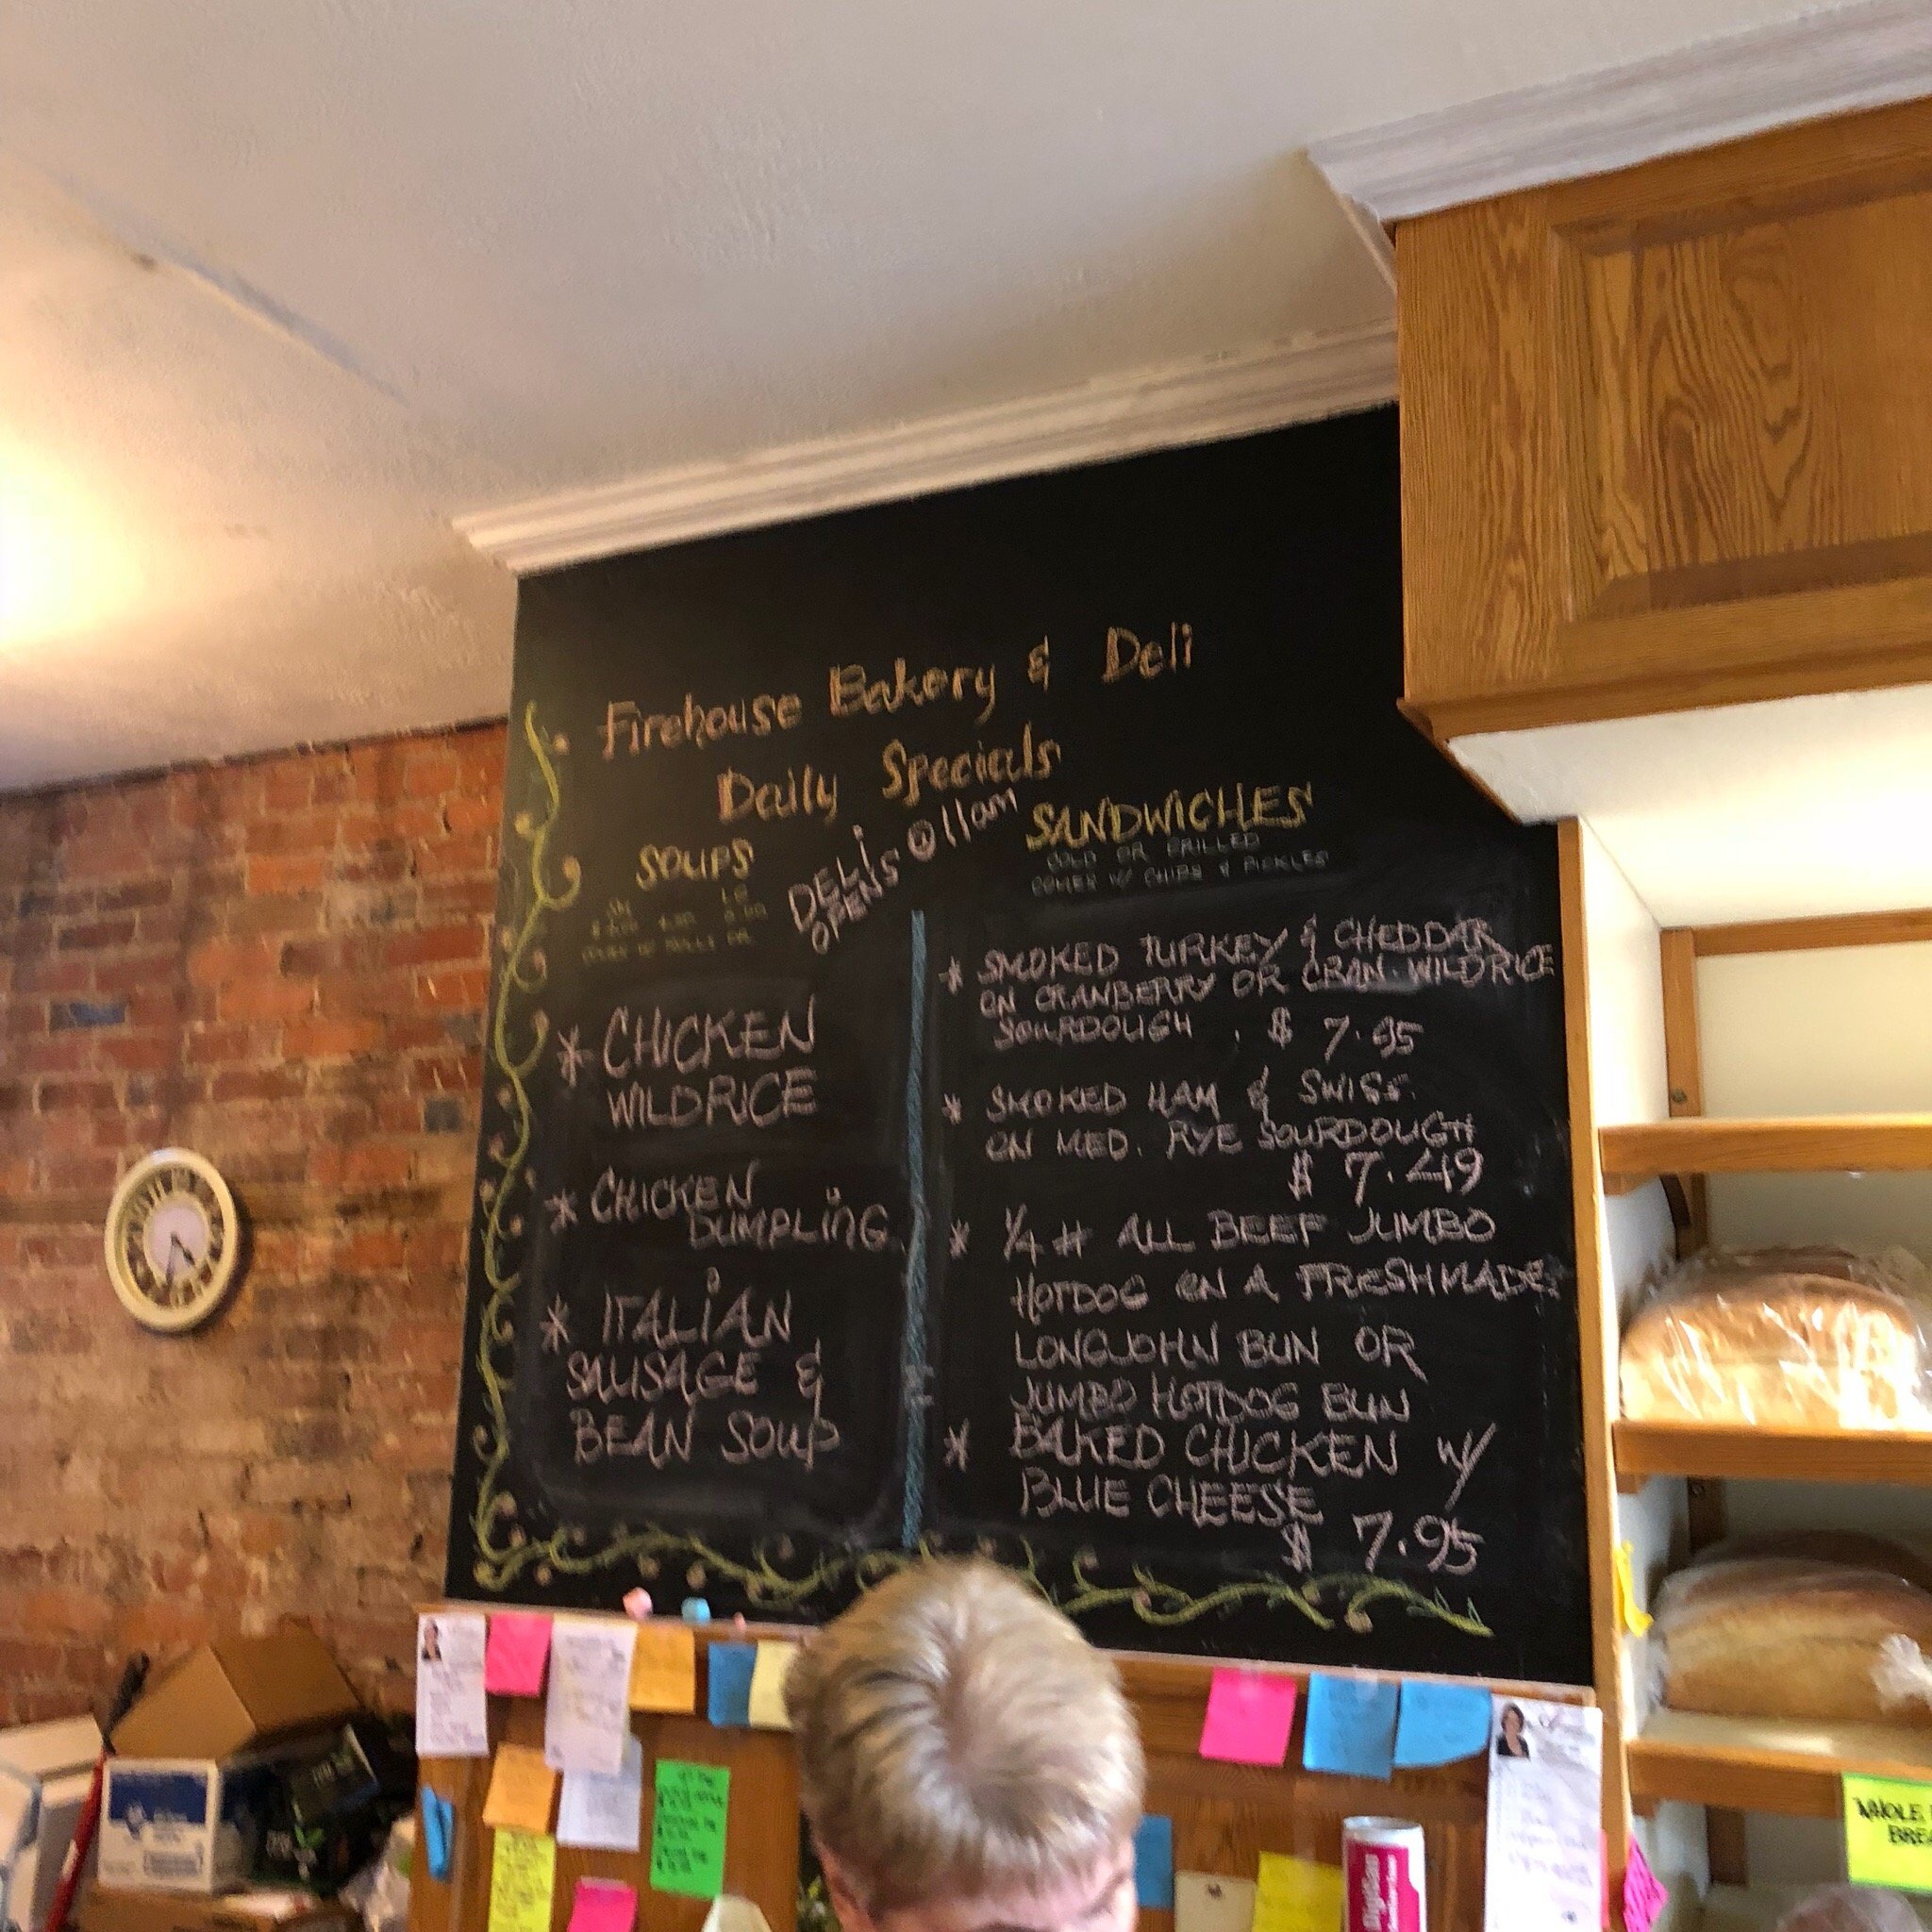 Firehouse Bakery & Deli
Daily Specials
DELI
OPENS @ 11am
SOUPS
SM LG
* CHICKEN
WILDRICE
* CHICKEN
DUMPLING
* ITALIAN
SAUSAGE &
BEAN SOUP
SANDWICHES
COLD OR GRILLED
COMES W/ CHIPS & PICKLES
* SMOKED TURKEY & CHEDDAR
ON CRANBERRY OR CRAN. WILDRICE
SOURDOUGH . $ 7.95
* SMOKED HAM & SWISS
ON MED. RYE SOURDOUGH
$ 7.49
* 1/4 # ALL BEEF JUMBO
HOTDOG ON A FRESHMADE
LONGJOHN BUN OR
JUMBO HOTDOG BUN
* BAKED CHICKEN W/
BLUE CHEESE
$ 7.95
WHOLE